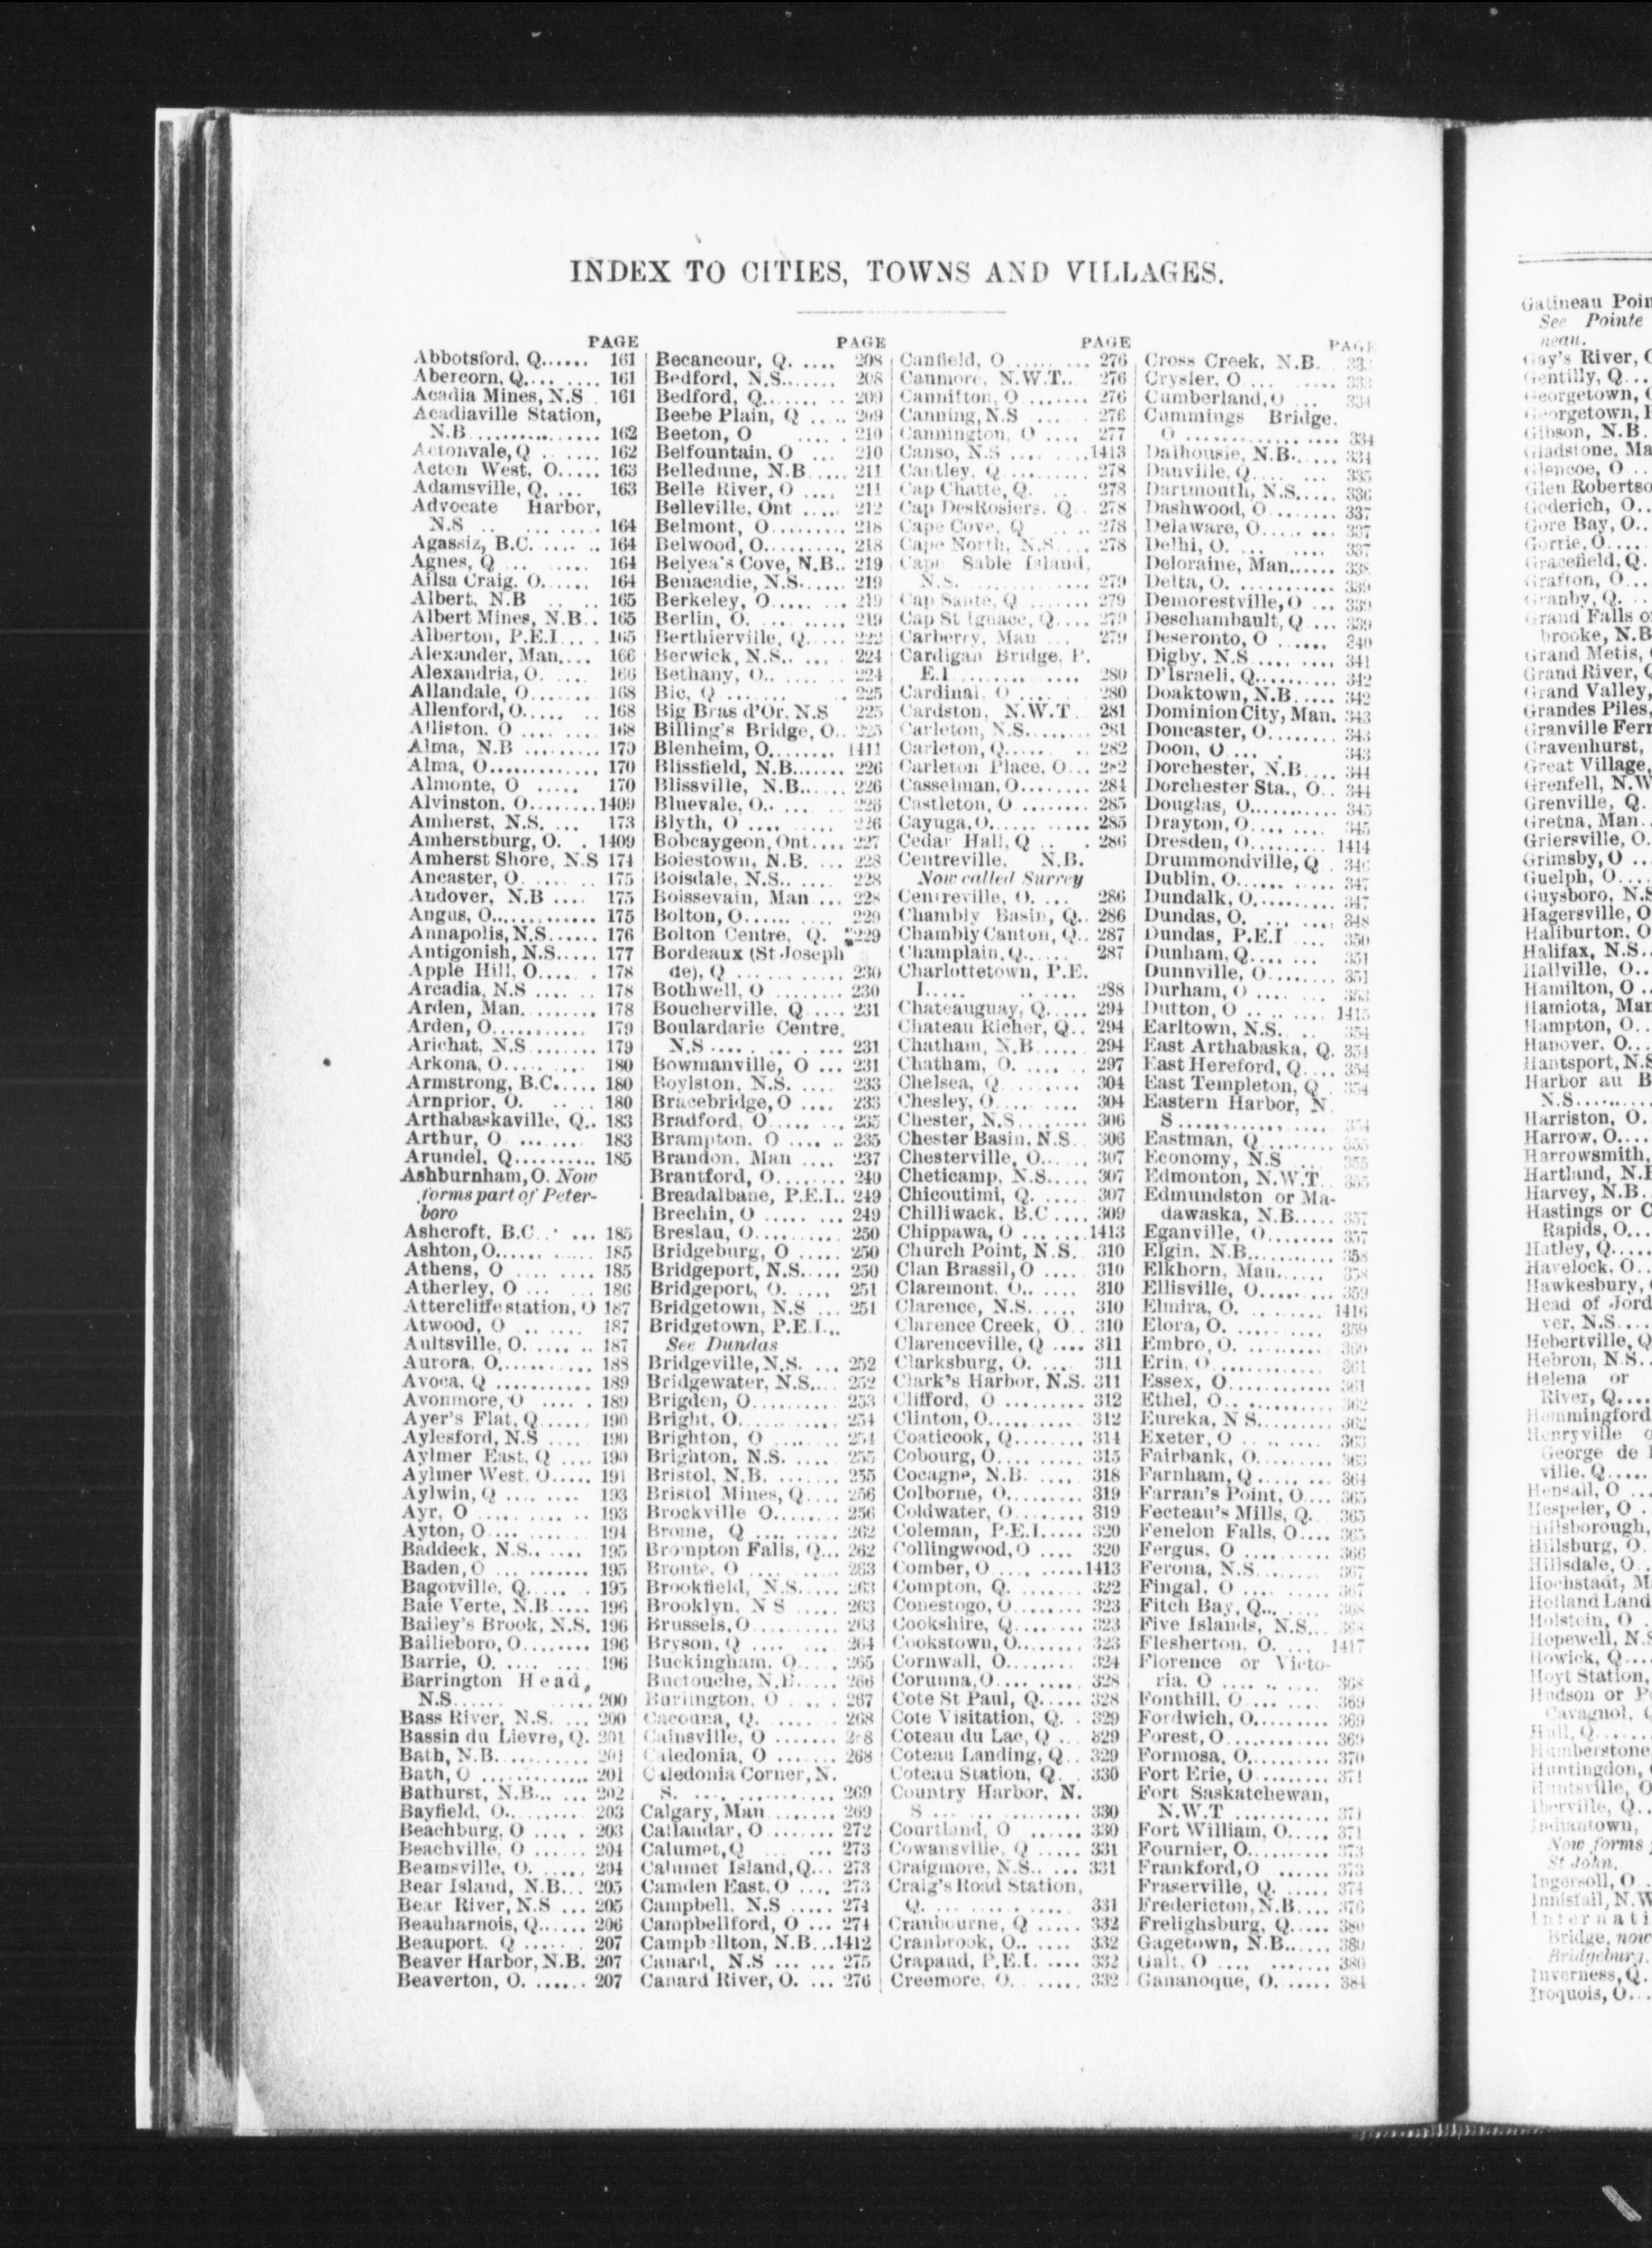 INDEX TO CITIES, TOWNS AND VILLAGES.
PAGE
Abbotsford, Q...... 161
Abercorn, Q.... .... 161
Acadia Mines, N.S . 161
Acadiaville Station,
N.B ................ 162
Actonvale, Q ....... 162
Acton West, O..... 163
Adamsville, Q. ... 163
Advocate Harbor,
N.S .. ........... 164
Agassiz, B.C...... .. 164
Agnes, Q ... ...... 164
Ailsa Craig. O...... 164
Albert, N.B .. .. 165
Albert Mines, N.B.. 165
Alberton, P.E.I.... . 165
Alexander, Man.... 166
Alexandria, O. .... 166
Allandale, O....... 168
Allenford, O..... .. 168
Alliston. O .... .... 168
Alma, N.B ......... 170
Alma, O............. 170
Almonte, O ..... 170
Alvinston, O........1409
Amherst, N.S. ... 173
Amherstburg, O. . 1409
Amherst Shore, N.S 174
Ancaster, O. ..... .. 175
Andover, N.B .... 175
Angus, O............ 175
Annapolis, N.S...... 176
Antigonish, N.S..... 177
Apple Hill, O..... . 178
Arcadia, N.S .... .. 178
Arden, Man......... 178
Arden, O........... 179
Arichat, N.S ........ 179
Arkona, O..... .... 180
Armstrong, B.C..... 180
Arnprior, O. .. .. 180
Arthabaskaville, Q.. 183
Arthur, O ........ 183
Arundel, Q.......... 185
Ashburnham, O. Now
forms part of Peter-
boro
Ashcroft, B.C . ... 185
Ashton, O..... ..... 185
Athens, O .... .... 185
Atherley, O ... ... 186
Attercliffe station, O 187
Atwood, O .. ..... 187
Aultsville, O. .... .. 187
Aurora, O.......... 188
Avoca, Q ........... 189
Avonmore, O ..... . 189
Ayer's Flat, Q...... 190
Aylesford, N.S ..... 190
Aylmer East, Q .... 190
Aylmer West, O..... 191
Aylwin, Q ......... 193
Ayr, O .......... .. 193
Ayton, O ... ....... 194
Baddeck, N.S.. ..... 195
Baden, O ... ....... 195
Bagotville, Q..... .. 195
Baie Verte, N.B..... 196
Bailey's Brook, N.S. 196
Bailieboro, O........ 196
Barrie, O. .... .... 196
Barrington Head,
N.S...... .....200
Bass River, N.S. ... 200
Bassin du Lievre, Q. 201
Bath, N.B........... 201
Bath, O ............. 201
Bathurst, N.B... ... 202
Bayfield, O.. ....... 203
Beachburg, O ..... . 203
Beachville, O ...... 204
Beamsville, O. ..... 204
Bear Island, N.B... 205
Bear River, N.S ... 205
Beauharnois, Q...... 206
Beauport. Q ...... . 207
Beaver Harbor, N.B. 207
Beaverton, O. ...... 207
PAGE
Becancour, Q. .... 208
Bedford, N.S....... 208
Bedford, Q....... .. 209
Beebe Plain, Q ..... 209
Beeton, O .... .. 210
Belfountain, O ... 210
Belledune, N.B..... 211
Belle River, O .... 211
Belleville, Ont ..... 212
Belmont, O.......... 218
Belwood, O.......... 218
Belyea's Cove, N.B.. 219
Benacadie, N.S...... 219
Berkeley, O..... ... 219
Berlin, O. ... ...... 219
Berthierville, Q..... 222
Berwick, N.S.. .... 224
Bethany, O.. ..... 224
Bic, Q ....... . 225
Big Bras d'Or, N.S 225
Billing's Bridge, O.. 225
Blenheim, O....... 1411
Blissfield, N.B....... 226
Blissville, N.B...... 226
Bluevale, O.. .... 226
Blyth, O .... ..... 226
Bobcaygeon, Ont.... 227
Boiestown, N.B. ... 228
Boisdale, N.S.. .... 228
Boissevain, Man ... 228
Bolton, O...... .... 229
Bolton Centre, Q. 229
Bordeaux (St Joseph
de), Q ............ 230
Bothwell, O ........ 230
Boucherville, Q .... 231
Boulardarie Centre,
N.S .... ......... 231
Bowmanville, O ... 231
Boylston, N.S. .... 233
Bracebridge, O .... 233
Bradford, O........ 235
Brampton, O .... .. 235
Brandon, Man .... 237
Brantford, O........ 240
Breadalbane, P.E.I.. 249
Brechin, O ..... ... 249
Breslau, O.......... 250
Bridgeburg, O ..... 250
Bridgeport, N.S..... 250
Bridgeport, O. ..... 251
Bridgetown, N.S ... 251
Bridgetown, P.E.I...
See Dundas
Bridgeville, N.S. ... 252
Bridgewater, N.S.... 252
Brigden, O.......... 253
Bright, O........... 254
Brighton, O ........ 254
Brighton, N.S. ..... 255
Bristol, N.B. ....... 255
Bristol Mines, Q.... 256
Brockville O........ 256
Brome, Q .... ..... 262
Brompton Falls, Q... 262
Bronte, O .... .... 263
Brookfield, N.S..... 263
Brooklyn, N S ..... 263
Brussels, O.......... 263
Bryson, Q .... ... 264
Buckingham, O.... . 265
Buctouche, N.B..... 266
Burlington, O ..... 267
Cacouna, Q. ....... 268
Cainsville, O .......
Caledonia, O ....... 268
Caledonia Corner, N.
S. .... ............ 269
Calgary, Man ....... 269
Callandar, O ....... 272
Calumet, Q ... 273
Calumet Island, Q... 273
Camden East, O .... 273
Campbell, N.S ..... 274
Campbellford, O ... 274
Campbellton, N.B...1412
Canard, N.S ... ... 275
Canard River, O. ... 276
PAGE
Canfield, O......... 276
Canmore, N.W.T.. 276
Cannifton, O ....... 276
Canning, N.S ...... 276
Cannington, O .... 277
Canso, N.S ... .....1413
Cantley, Q ......... 278
Cap Chatte, Q. .. 278
Cap DesRosiers, Q.. 278
Cape Cove, Q .. .. 278
Cape North, N.S.... 278
Cape Sable Island,
N.S. ............. 279
Cap Sante, Q ....... 279
Cap St Ignace, Q.... 279
Carberry, Man ... 279
Cardigan Bridge, P.
E.I. ............. 280
Cardinal, O .... . 280
Cardston, N.W.T. 281
Carleton, N.S........ 281
Carleton, Q...... .. 282
Carleton Place, O... 282
Casselman, O........ 284
Castleton, O ........ 285
Cayuga, O........... 285
Cedar Hall, Q .. . 286
Centreville, N.B.
Now called Surrey
Centreville, O. ... 286
Chambly Basin, Q.. 286
Chambly Canton, Q.. 287
Champlain, Q...... 287
Charlottetown, P.E.
I..... ...... 288
Chateauguay, Q..... 294
Chateau Richer, Q.. 294
Chatham, N.B ...... 294
Chatham, O. ...... 297
Chelsea, Q ......... 304
Chesley, O.... .... 304
Chester, N.S........ 306
Chester Basin, N.S. 306
Chesterville, O..... 307
Cheticamp, N.S..... 307
Chicoutimi, Q. ..... 307
Chilliwack, B.C .... 309
Chippawa, O .......1413
Church Point, N.S. 310
Clan Brassil, O .... 310
Claremont, O.. .... 310
Clarence, N.S. .... 310
Clarence Creek, O.. 310
Clarenceville, Q .... 311
Clarksburg, O. .... 311
Clark's Harbor, N.S. 311
Clifford, O ......... 312
Clinton, O.......... 312
Coaticook, Q........ 314
Cobourg, O.......... 315
Cocagne, N.B. ..... 318
Colborne, O......... 319
Coldwater, O........ 319
Coleman, P.E.I..... 320
Collingwood, O .... 320
Comber, O..... .....1413
Compton, Q. ....... 322
Conestogo, O........ 323
Cookshire, Q........ 323
Cookstown, O....... 323
Cornwall, O........ 324
Corunna, O.... ..... 328
Cote St Paul, Q..... 328
Cote Visitation, Q. . 329
Coteau du Lac, Q ... 329
Coteau Landing, Q.. 329
Coteau Station, Q. . 330
Country Harbor, N.
S ... ............ 330
Courtland, O ...... 330
Cowansville, Q ..... 331
Craigmore, N.S.. ... 331
Craig's Road Station,
Q. .............. 331
Cranbourne, Q ..... 332
Cranbrook, O.. .... 332
Crapaud, P.E.I. .... 332
Creemore, O. ..... 332
PAGE
Cross Creek, N.B.
Crysler, O ... ..... 333
Cumberland, O ... 334
Cummings Bridge,
O ................. 334
Dalhousie, N.B...... 334
Danville, Q.... ... 335
Dartmouth, N.S..... 336
Dashwood, O ....... 337
Delaware, O........ 337
Delhi, O. ... ..... 337
Deloraine, Man...... 338
Delta, O. .......... 339
Demorestville, O ... 339
Deschambault, Q ... 339
Deseronto, O ...... 340
Digby, N.S ......... 341
D'Israeli, Q......... 342
Doaktown, N.B..... 342
Dominion City, Man. 343
Doncaster, O........ 343
Doon, O .... . 343
Dorchester, N.B .... 344
Dorchester Sta., O.. 344
Douglas, O.......... 345
Drayton, O.... .... 345
Dresden, O......... 1414
Drummondville, Q . 346
Dublin, O.......... 347
Dundalk, O......... 347
Dundas, O. ....... 348
Dundas, P.E.I .... 350
Dunham, Q........ 351
Dunnville, O....... 351
Durham, O ........ 353
Dutton, O ........ 1415
Earltown, N.S. .. 354
East Arthabaska, Q. 354
East Hereford, Q.... 354
East Templeton, Q . 354
Eastern Harbor, N.
S ................. 354
Eastman, Q ........ 355
Economy, N.S ... 355
Edmonton, N.W.T.. 355
Edmundston or Ma-
dawaska, N.B..... 357
Eganville, O........ 357
Elgin, N.B.......... 358
Elkhorn, Man...... 358
Ellisville, O........ 359
Elmira, O. ........ 1416
Elora, O. .......... 359
Embro, O. ......... 360
Erin, O ............ 361
Essex, O............ 361
Ethel, O.. ......... 362
Eureka, N S........ 362
Exeter, O .. ...... 363
Fairbank, O........ 363
Farnham, Q........ 364
Farran's Point, O.... 365
Fecteau's Mills, Q. 365
Fenelon Falls, O.... 365
Fergus, O ......... 366
Ferona, N.S........ 367
Fingal, O ... ..... 367
Fitch Bay, Q... ... 368
Five Islands, N.S... 368
Flesherton, O. ... 1417
Florence or Victo-
ria, O .... ..... 368
Fonthill, O ........ 369
Fordwich, O......... 369
Forest, O............ 369
Formosa, O......... 370
Fort Erie, O......... 371
Fort Saskatchewan,
N.W.T ........... 371
Fort William, O..... 371
Fournier, O......... 373
Frankford, O ...... 373
Fraserville, Q. ..... 374
Fredericton, N.B.... 376
Frelighsburg, Q..... 380
Gagetown, N.B...... 380
Galt, O .... ....... 380
Gananoque, O...... 384
Gatineau Poin
See Pointe
neau.
Gay's River,
Gentilly, Q...
Georgetown,
Georgetown,
Gibson, N.B.
Gladstone, Ma
Glencoe, O ..
Glen Robertso
Goderich, O..
Gore Bay, O..
Gorrie, O....
Gracefield, Q.
Grafton, O...
Granby, Q. ..
Grand Falls o
brooke, N.B
Grand Metis,
Grand River, Q
Grand Valley,
Grandes Piles,
Granville Ferr
Gravenhurst,
Great Village,
Grenfell, N.W
Grenville, Q.
Gretna, Man..
Griersville, O.
Grimsby, O ..
Guelph, O....
Guysboro, N.S
Hagersville, O
Haliburton, O
Halifax, N.S..
Hallville, O..
Hamilton, O ..
Hamiota, Man
Hampton, O..
Hanover, O...
Hantsport, N.S
Harbor au B
N.S........
Harriston, O.
Harrow, O....
Harrowsmith,
Hartland, N.B
Harvey, N.B.
Hastings or C
Rapids, O...
Hatley, Q.....
Havelock, O..
Hawkesbury,
Head of Jord
ver, N.S....
Hebertville, Q
Hebron, N.S..
Helena or
River, Q....
Hemmingford
Henryville o
George de
ville, Q.....
Hensall, O ...
Hespeler, O .
Hillsborough,
Hillsburg, O.
Hillsdale, O..
Hochstadt, M
Holland Land
Holstein, O .
Hopewell, N.S
Howick, Q....
Hoyt Station,
Hudson or P
Cavagnol, Q
Hull, Q.......
Humberstone
Huntingdon,
Huntsville, O
Iberville, Q..
Indiantown,
Now forms
St John.
Ingersoll, O .
Innisfail, N.W
Internati
Bridge, now
Bridgeburg.
Inverness, Q.
Iroquois, O...